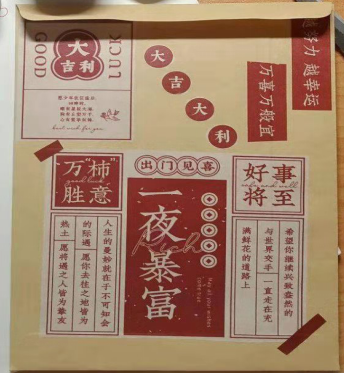 GOOD
大
吉利
LUCK
越努力 越幸运
万喜万般宜
大
吉
大
利
万"柿"
胜意
出门见喜
好事
将至
一夜暴富
Rich
May all your wishes
come true
人生的曼妙就在于不可知会
的际遇 愿你去往之地皆为
热土 愿将遇之人皆为挚友
希望你继续兴致盎然的
与世界交手 一直走在充
满鲜花的道路上